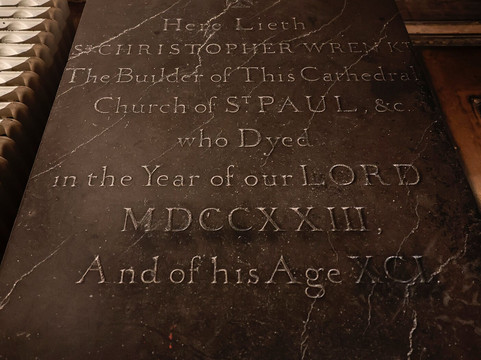 Here Lieth
Sr CHRISTOPHER WREN Kt
The Builder of This Cathedral
Church of St PAUL, &c.
who Dyed
in the Year of our LORD
MDCCXXIII,
And of his Age XCI.